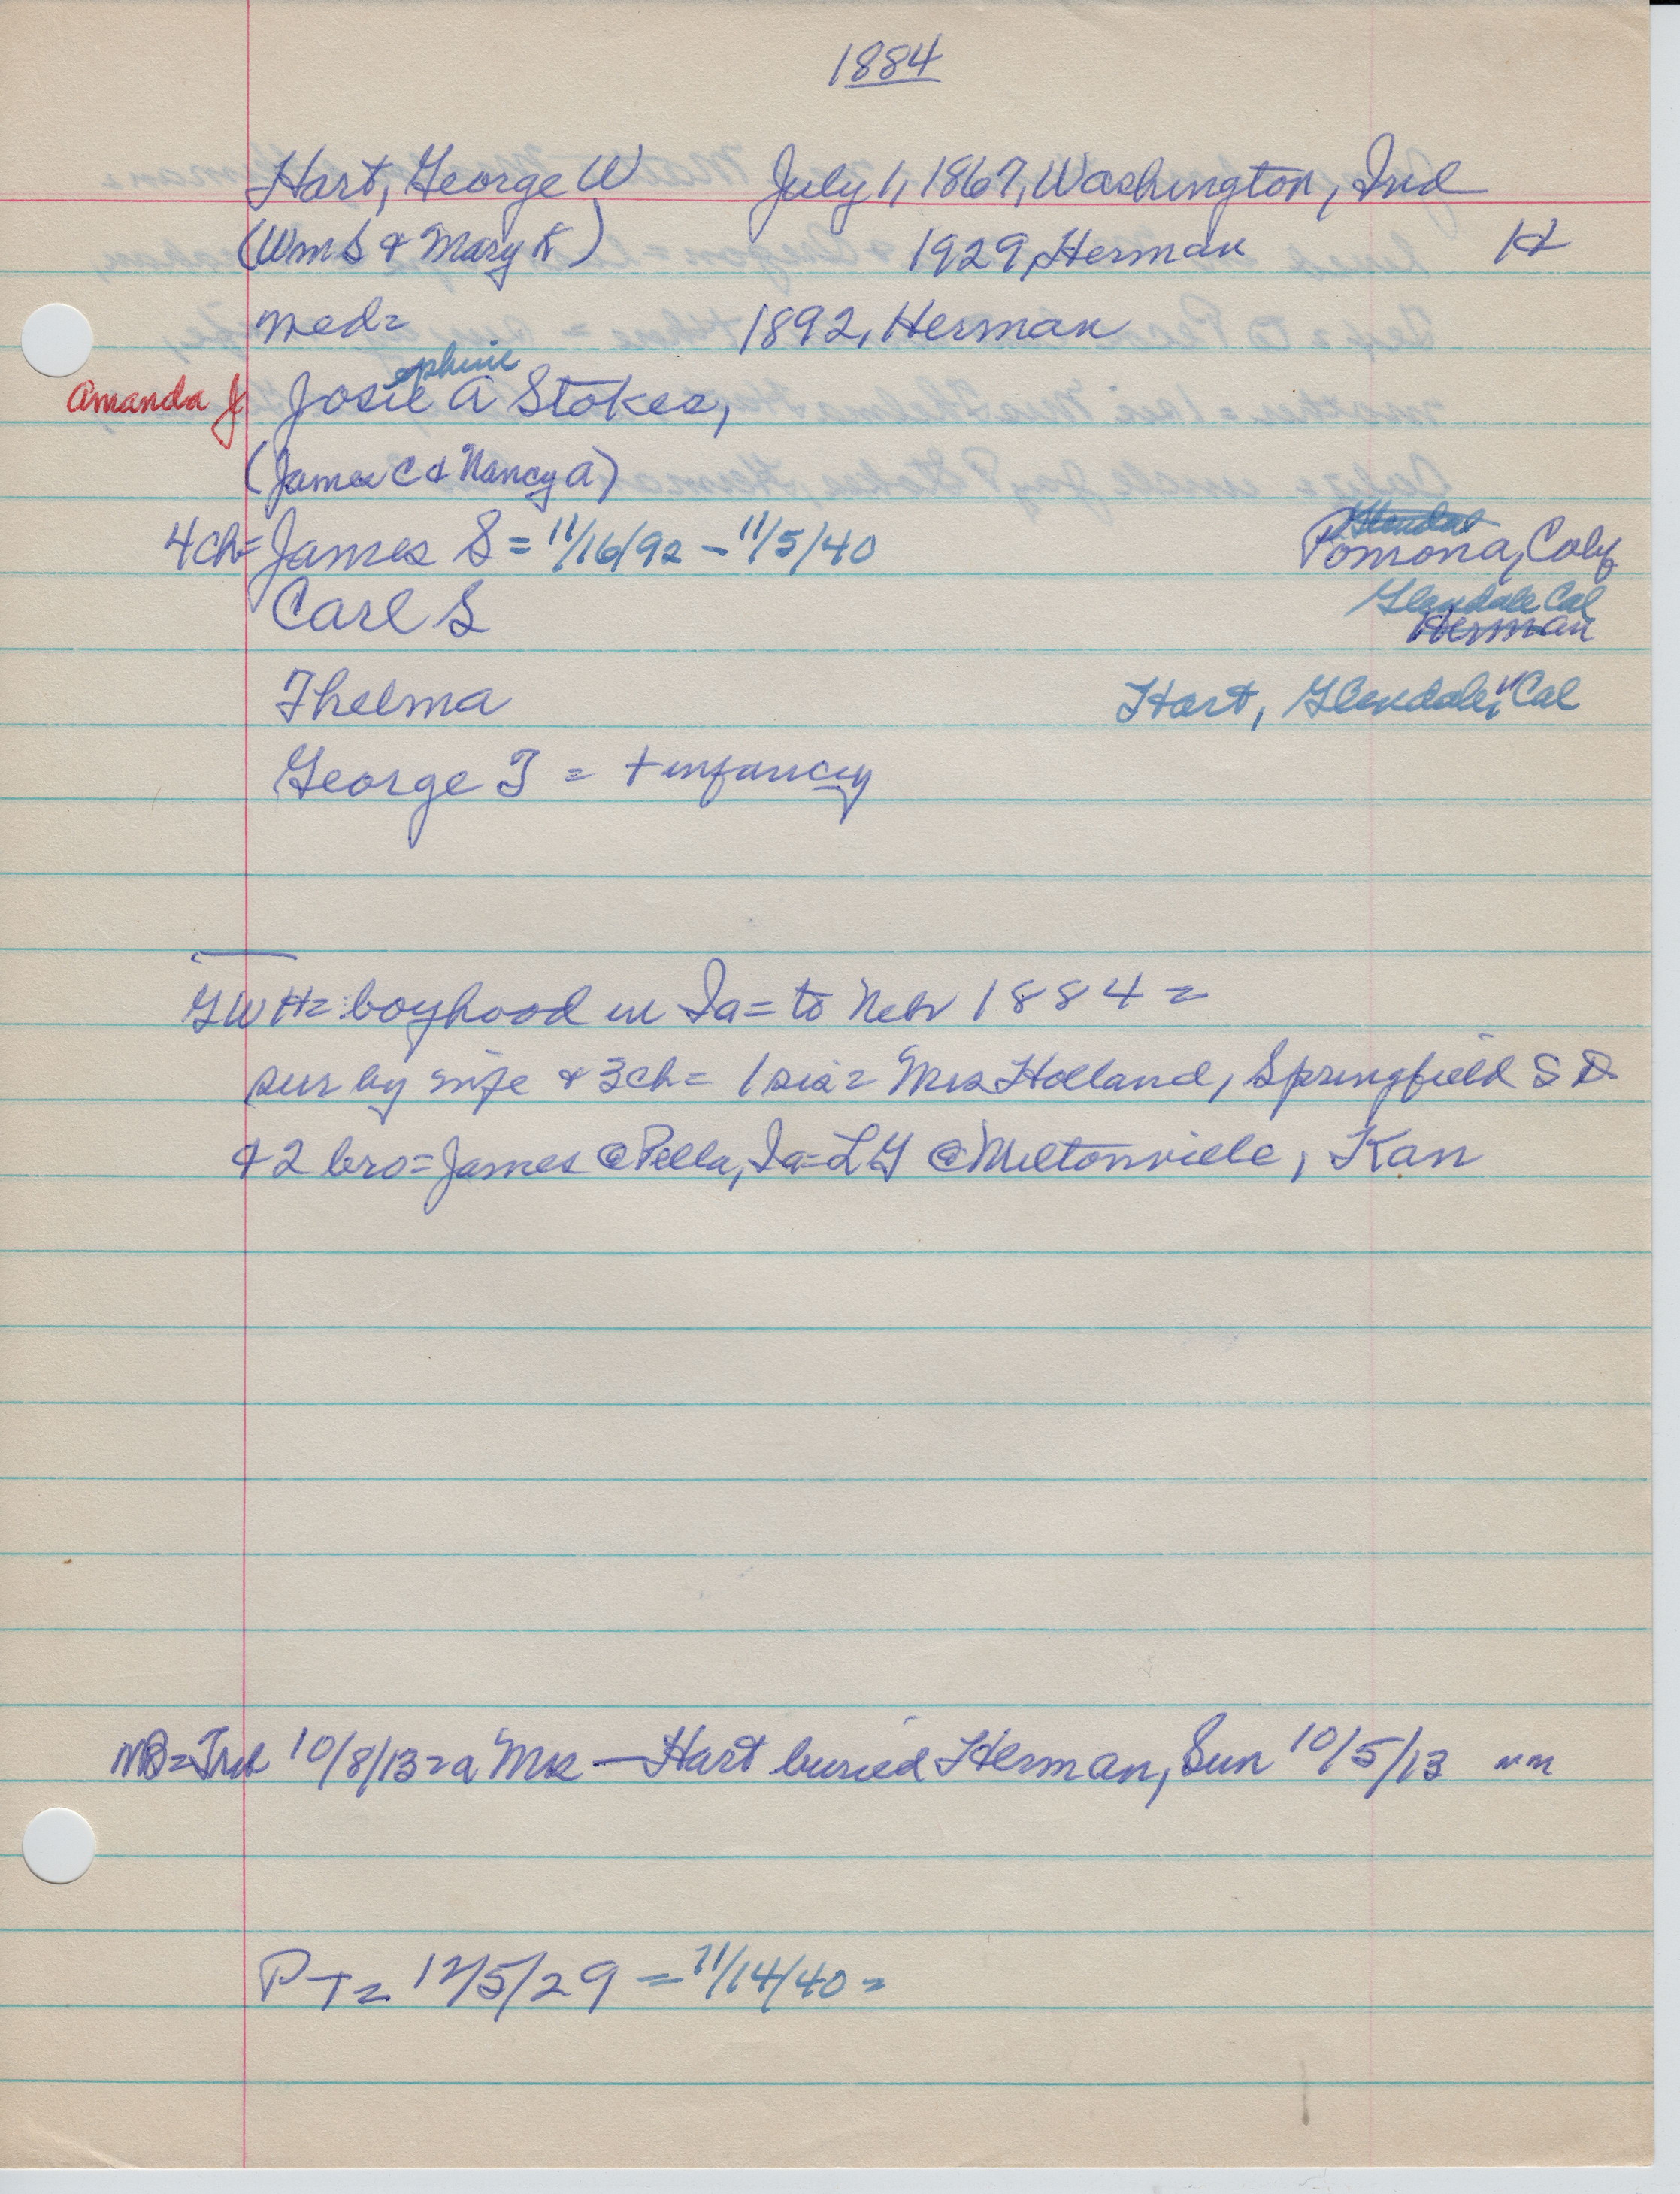 1884
Hart, George W July 1, 1867, Washington, Ind
(Wm S & Mary K) 1929, Herman H
med= 1892, Herman
ephine
Amanda J Josie A Stokes,
(James C & Nancy A)
4ch= James S = 11/16/92 - 11/5/40 Pomona, Calif
Carl S Glendale Cal
Herman
Thelma Hart, Glendale, Cal
George T = + infancy
GWH= boyhood in Ia= to Nebr 1884=
sur by wife & 3ch= 1 sis= Mrs Holland, Springfield S D
& 2 bro= James @ Pella, Ia= L G @ Miltonvielle, Kan
NB= Trib 10/8/13= a Mrs — Hart buried Herman, Sun 10/5/13
PT= 12/5/29 = 11/14/40 =